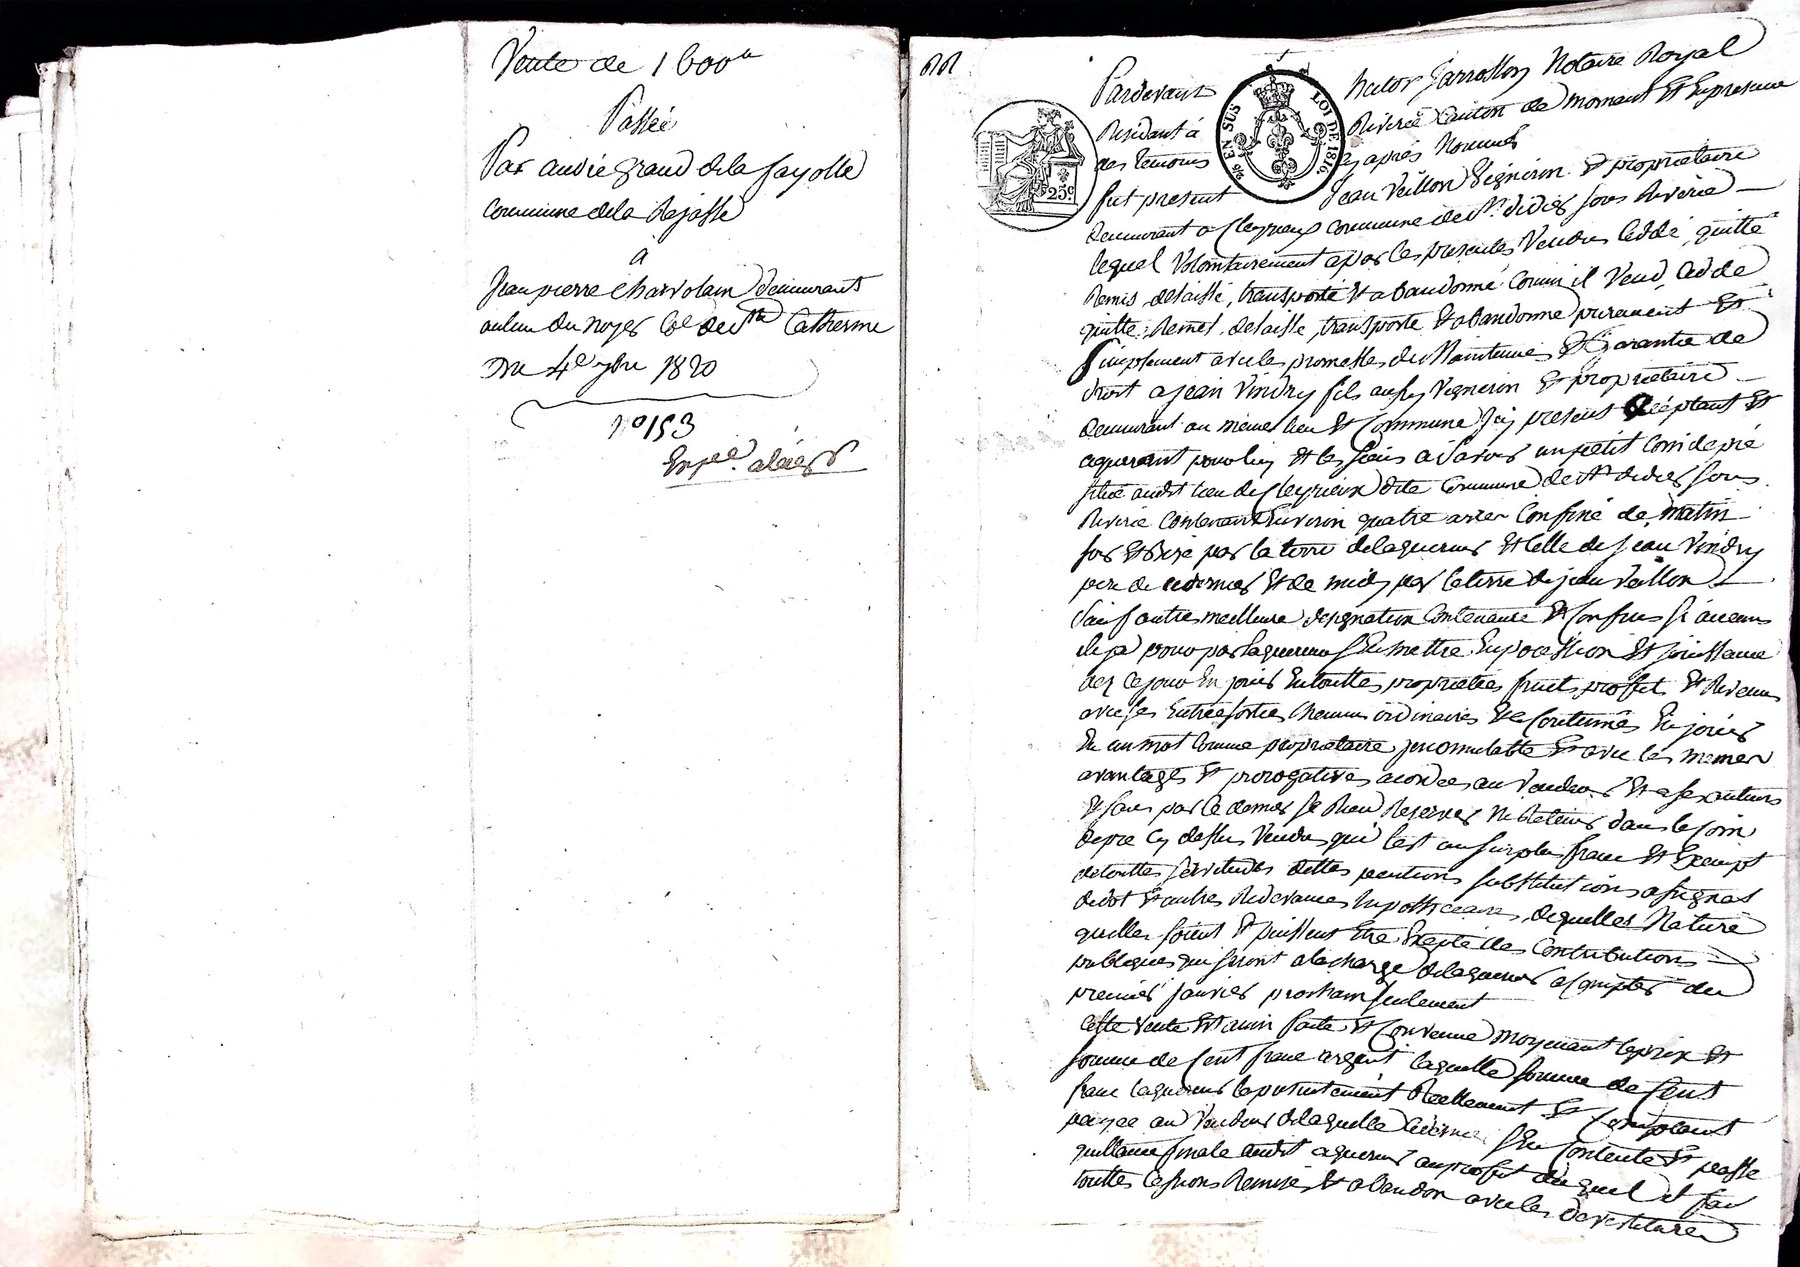 Vente de 1600tt
Passée
Par andré grand de la fayolle
commune de la Rejasse
a
Jean pierre Charvolain demeurants
au lieu du noyer Cne de Ste Catherine
Du 4e 7bre 1820
No 153
Expee. a l'aigr
Pardevant hector Jarrosson Notaire Royal
Residant a Riverie Canton de mornant Et En presence
des temoins cy après Nommés
fut present Jean Veillon Vigneron Et propriétaire
EN SUS
LOI DE 1816.
25c.
demeurant a Cleyrieux commune de St. didier sous Riverie
lequel Volontairement a par les presentes Vendu Ceddé, quitté
Remis, delaissé, transporté Et abandonné Comm il Vend, Cedde
quitte, Remet, delaisse, transporte Et abandonne purement Et
Simplement avec les promesses de Maintenue Et Garantie de
droit a Jean Vindry fils aussy Vigneron Et propriétaire
demeurant au même lieu Et Commune Icy present acceptant Et
aquerant pour luy Et les siens a Savoir un petit Coin de pré
situé audit lieu de Cleyrieux dite Commune de St didier sous
Riverie Contenant Environ quatre ares Confiné de matin
soir Et bize par la terre de laquereur Et Celle de Jean Vindry
pere de ce dernier Et de midy par la terre de jean Veillon
Sauf autre meilleure designation Contenance Et Confins Si aucuns
il y a pour par laquereur Sen mettre En possession Et jouissance
dez ce jour En jouir En toutte propriétée fruit profit Et Revenu
avec ses Entrée sortie Chemins ordinaires Et a Coutumés En jouir
En un mot Comme propriétaire jncomutable Et avec les memes
avantages Et prerogatives acordées au Vendeur Et a ses auteurs
Et sans par le dernier se Rien Reserver Ni Retenir dans le Coin
de pre Cy dessus Vendu qui Est au surplus franc Et Exempt
de touttes servitudes dettes pentions substitutions assignat
de dot Et autres Redevances hypothecaires, de quelles Nature
quelles soient Et puissent Etre Exepté des Contributions
publiques qui seront a la charge de laquereur a Compter du
premier janvier prochain seulement
Cette Vente Est ainsi faite Et Convenue moyenant le prix Et
somme de Cent franc argent laquelle somme de Cent
franc laquereur la presentement Reellement Et Comptant
payée au Vendeur de laquelle ce dernier Sen Contente Et passe
quittance finale audit aquereur au profit du quel il fait
touttes Cessions Remise Et abandon avec les devestiture